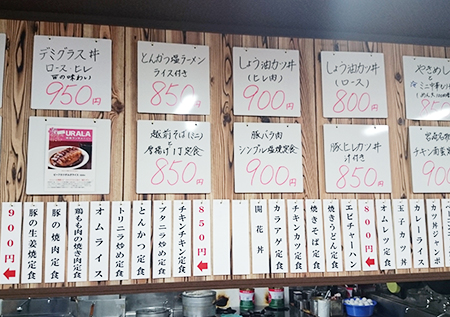 デミグラス丼
ロース・ヒレ
百の味わい
950円
とんかつ塩ラーメン
ライス付き
850円
しょう油カツ丼
(ヒレ肉)
900円
しょう油カツ丼
(ロース)
800円
やきめし
URALA
越前そば(ミニ)
と
厚揚げ1丁定食
850円
豚バラ肉
シンプル塩焼定食
900円
豚ヒレカツ丼
汁付き
850円
宮崎名物
チキン南蛮定食
900円
豚の生姜焼定食
豚の焼肉定食
鶏もも肉の焼き肉定食
オムライス
トリニラ炒め定食
とんかつ定食
ブタニラ炒め定食
チキンチキン定食
850円
開花丼
カラアゲ定食
チキンカツ定食
焼きそば定食
焼うどん定食
エビチャーハン
800円
オムレツ定食
玉子カツ丼
カレーライス
カツ丼ジャンボ
カツ丼定食